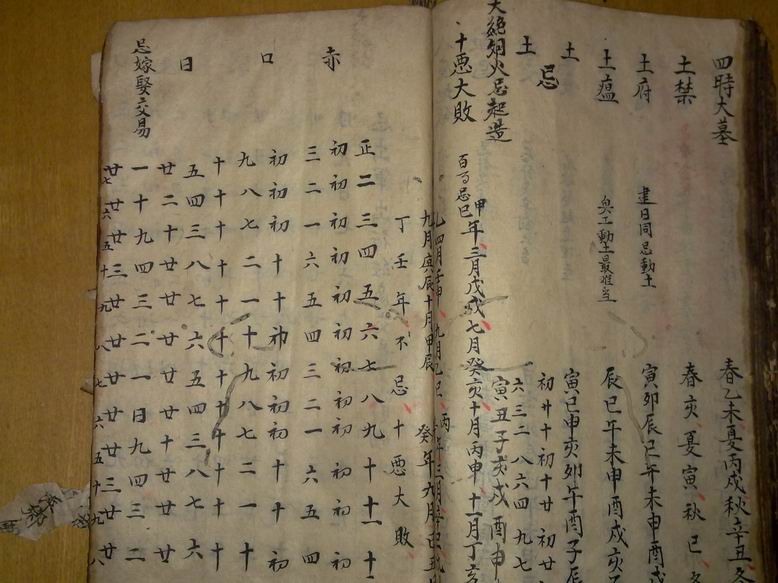 四時大墓 春乙未夏丙戌秋辛丑冬
土禁 春亥夏寅秋巳冬
土府 建日同忌動土 寅卯辰巳午未申酉戌
土瘟 動土最难当 辰巳午未申酉戌亥子
土 寅巳申亥卯午酉子辰
忌 初廿十初十廿初廿
六三二八六四九七
土 寅丑子亥戌酉申
大絕烟火忌起造
十悪大敗 忌巳甲年三月戊戌七月癸亥十月丙申十一月丁亥
乙四月壬申九月乙巳丙年三月辛巳
九月庚辰十月甲辰癸年六月
丁壬年不忌十悪大敗
赤口日
正二三四五六七八九十十一十二
初初初初初初初初初初初初
三二一六五四三二一六五四
初初初十十初初初初十十初
九八七二一十九八七二一十
十十十十十十十十十十十十
五四三八七六五四三八七六
廿二十廿廿廿廿廿十廿廿廿
一十九四三二一日九四三二
廿廿廿三廿廿廿廿廿三廿廿
七六五十九八七六五十九八
忌嫁娶交易